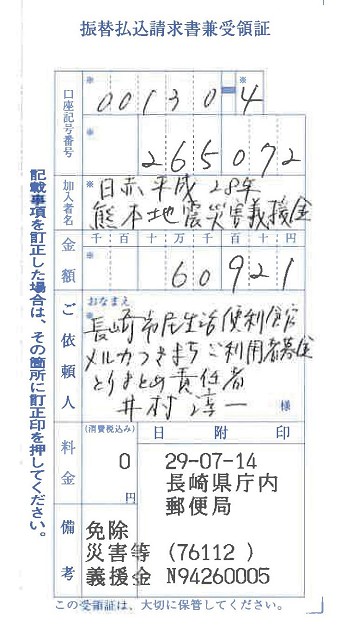 振替払込請求書兼受領証
口座記号番号
※ 00130-4 ※
※ 265072
加入者名
※ 日赤平成28年
熊本地震災害義援金
金額
千 百 十 万 千 百 十 円
※ 60921
ご依頼人
おなまえ
※ 長崎市民生活便利会館
メルカつきまちご利用者募金
とりまとめ責任者
井村 淳一 様
料金
(消費税込み)
0
円
日附印
29-07-14
長崎県庁内
郵便局
備考
免除
災害等 (76112 )
義援金 N94260005
記載事項を訂正した場合は、その箇所に訂正印を押してください。
この受領証は、大切に保管してください。